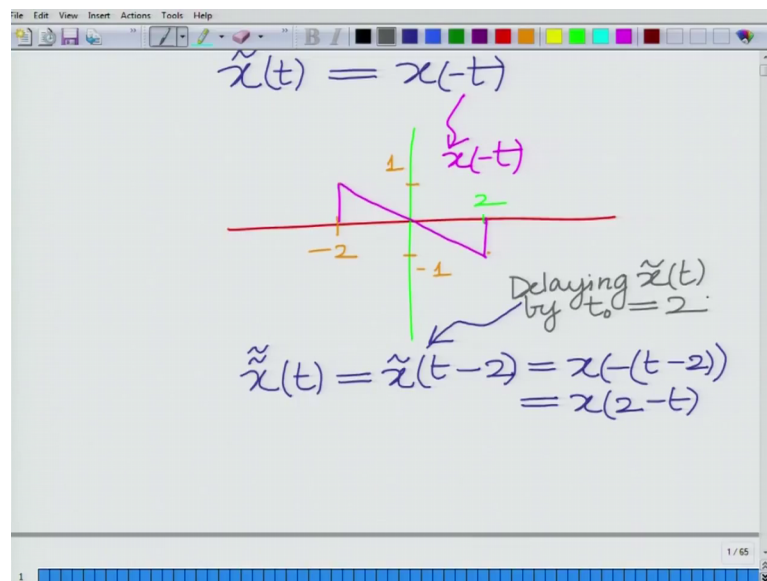 File Edit View Insert Actions Tools Help
B I
x̃(t) = x(-t)
x(-t)
1
2
-2
-1
Delaying x̃(t)
by t₀ = 2.
x̃̃(t) = x̃(t-2) = x(-(t-2))
= x(2-t)
1 / 65
1